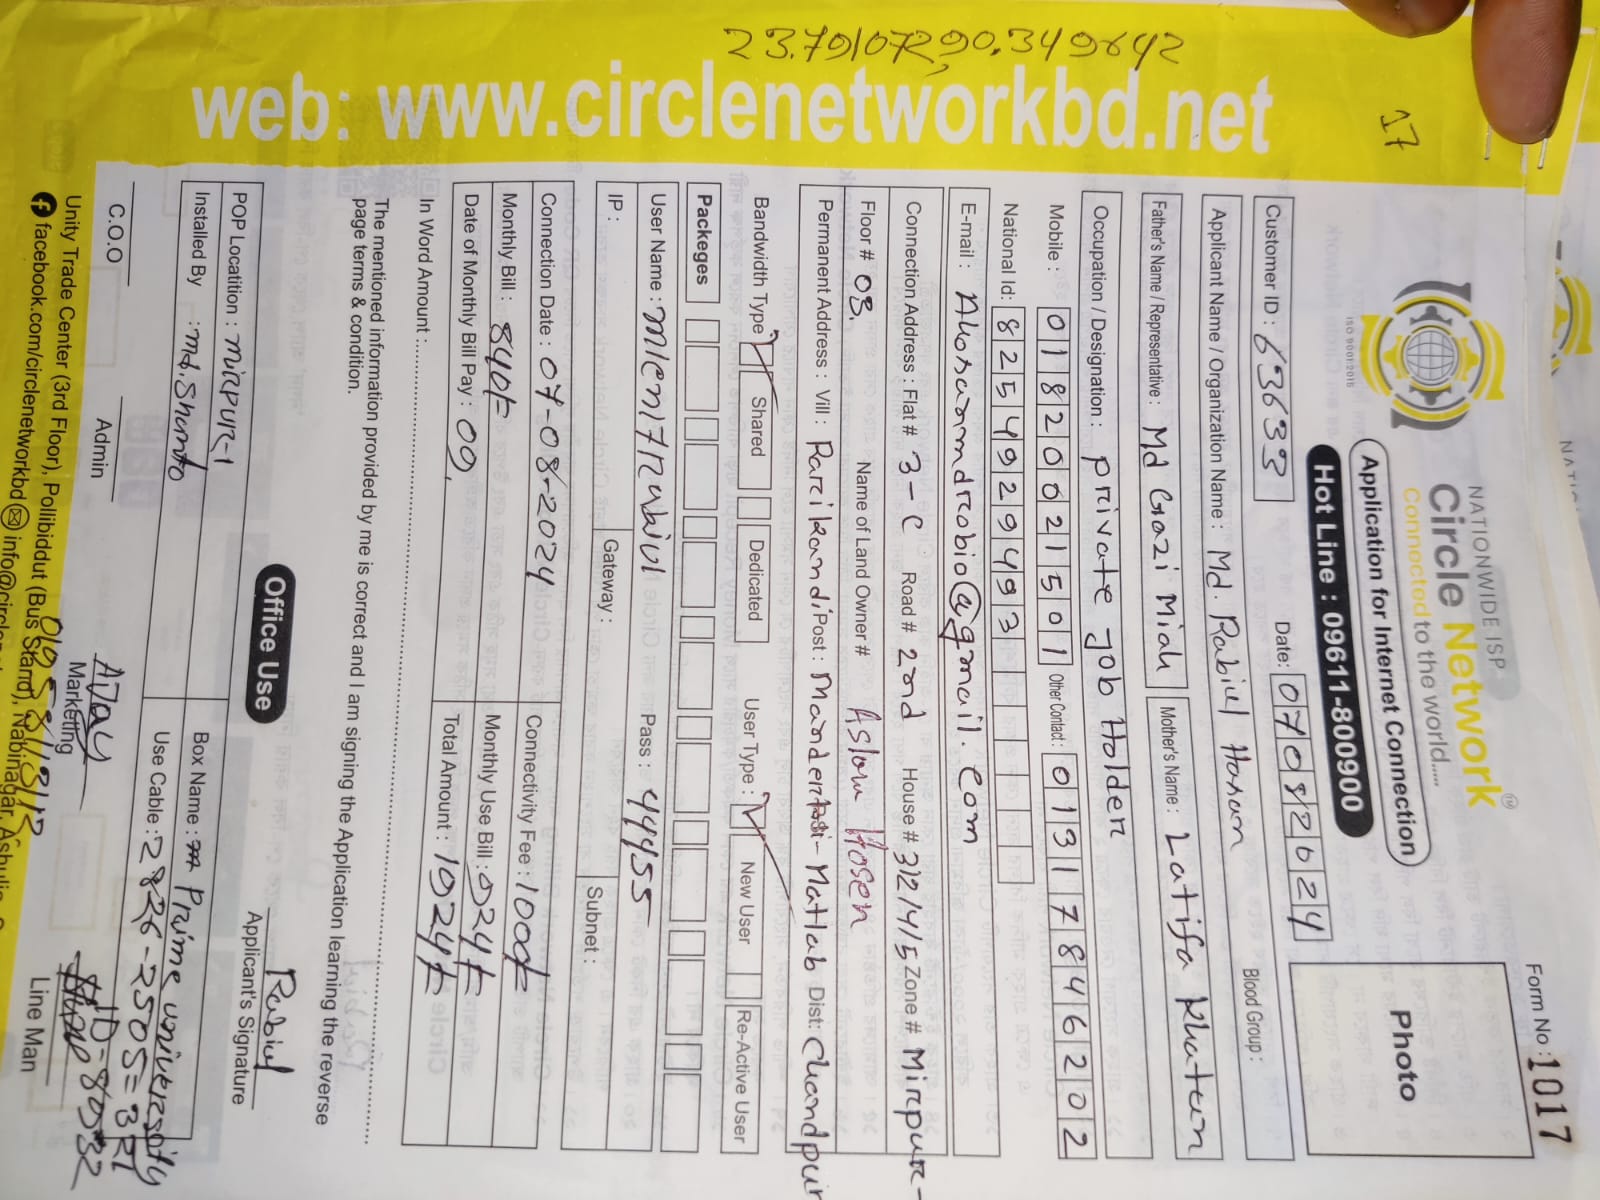 23.791072,90.349642
17
web: www.circlenetworkbd.net
Form No : 1017
NATIONWIDE ISP
Circle Network
TM
Connected to the world.....
ISO 9001:2015
Application for Internet Connection
Hot Line : 09611-800900
Photo
Customer ID : 63633 Date: 07082024
Applicant Name / Organization Name : Md. Rabiul Hasan Blood Group :
Father's Name / Representative : Md Gazi Miah Mother's Name : Latifa Khatun
Occupation / Designation : private Job Holder
Mobile : 01820021501 Other Contact : 01317846202
National Id: 8254929493
E-mail : @gmail.com
Connection Address : Flat # 3-C Road # 2nd House # 312/4/5 Zone # Mirpur-
Floor # 03. Name of Land Owner # Aslam Hosen
Permanent Address : Vill : Parikandi Post : Matlab Dist: Chandpur
Bandwidth Type Shared Dedicated User Type : New User Re-Active User
Packeges
User Name : Pass : 44455
IP : Gateway : Subnet :
Connection Date : 07-08-2024 Connectivity Fee : 1000/=
Monthly Bill : 840/= Monthly Use Bill : 024/=
Date of Monthly Bill Pay : 09. Total Amount : 1024/=
In Word Amount :
The mentioned information provided by me is correct and I am signing the Application learning the reverse
page terms & condition.
Rabiul
Applicant's Signature
Office Use
POP Locatition : mirpur-1 Box Name : Prime university
Installed By : md. Shanto Use Cable : 2826-2505=321
ID-80932
C.O.O Admin Marketing Line Man
Unity Trade Center (3rd Floor), Pollibiddut (Bus Stand), Nabinagar, Ashulia
facebook.com/circlenetworkbd info@circlenet